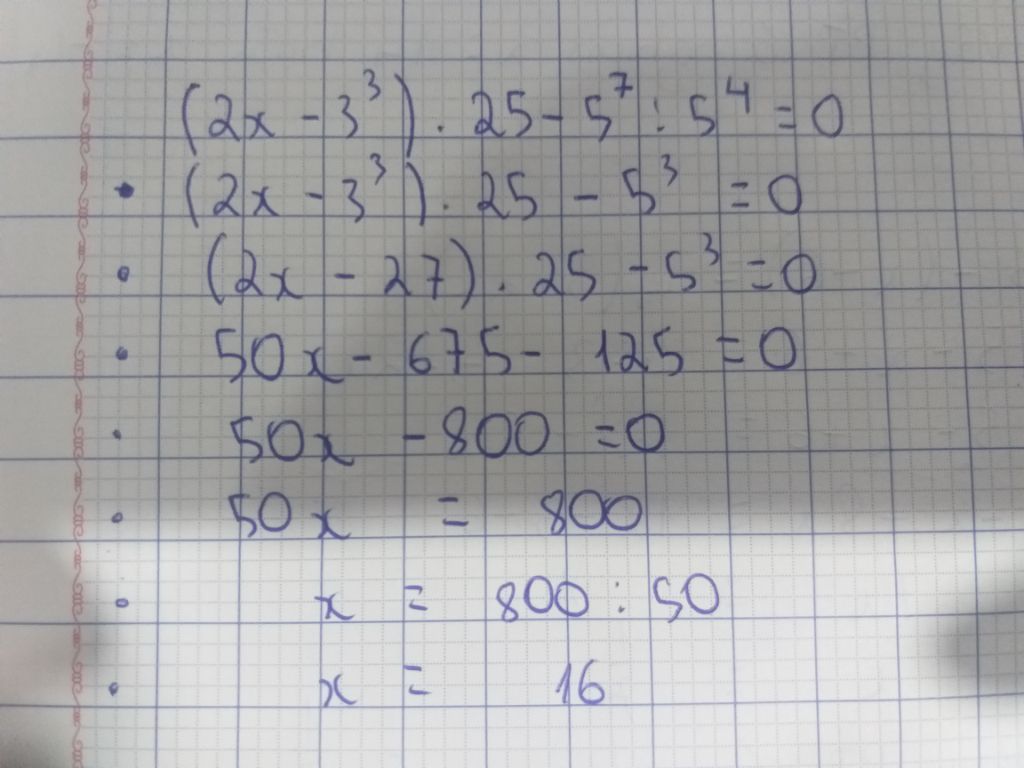 (2x - 3³) . 25 - 5⁷ : 5⁴ = 0
• (2x - 3³) . 25 - 5³ = 0
• (2x - 27) . 25 - 5³ = 0
• 50x - 675 - 125 = 0
• 50x - 800 = 0
• 50x = 800
• x = 800 : 50
• x = 16